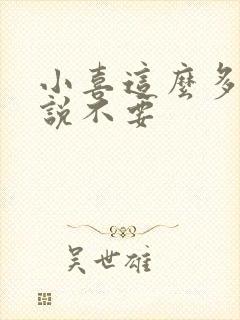 小喜這麼多
說不要
吳世雄